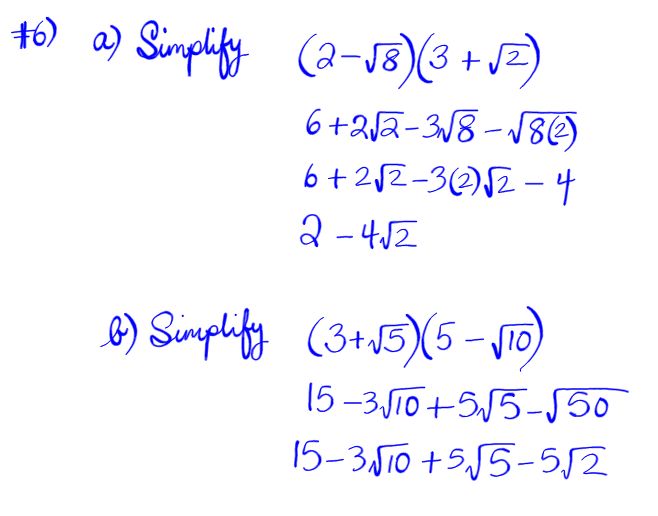 #6) a) Simplify (2-√8)(3+√2)
6+2√2-3√8-√8(2)
6+2√2-3(2)√2-4
2-4√2
b) Simplify (3+√5)(5-√10)
15-3√10+5√5-√50
15-3√10+5√5-5√2